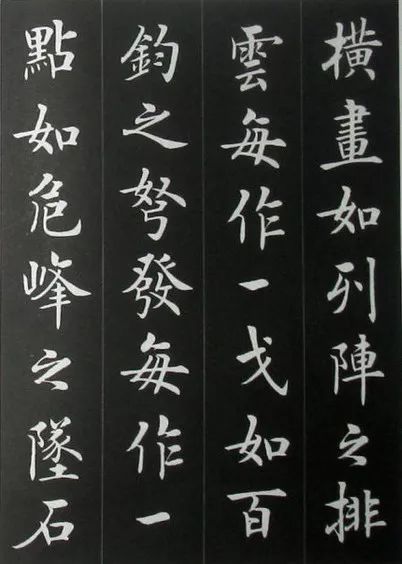 橫畫如列陣之排
雲每作一戈如百
鈞之弩發每作一
點如危峰之墜石